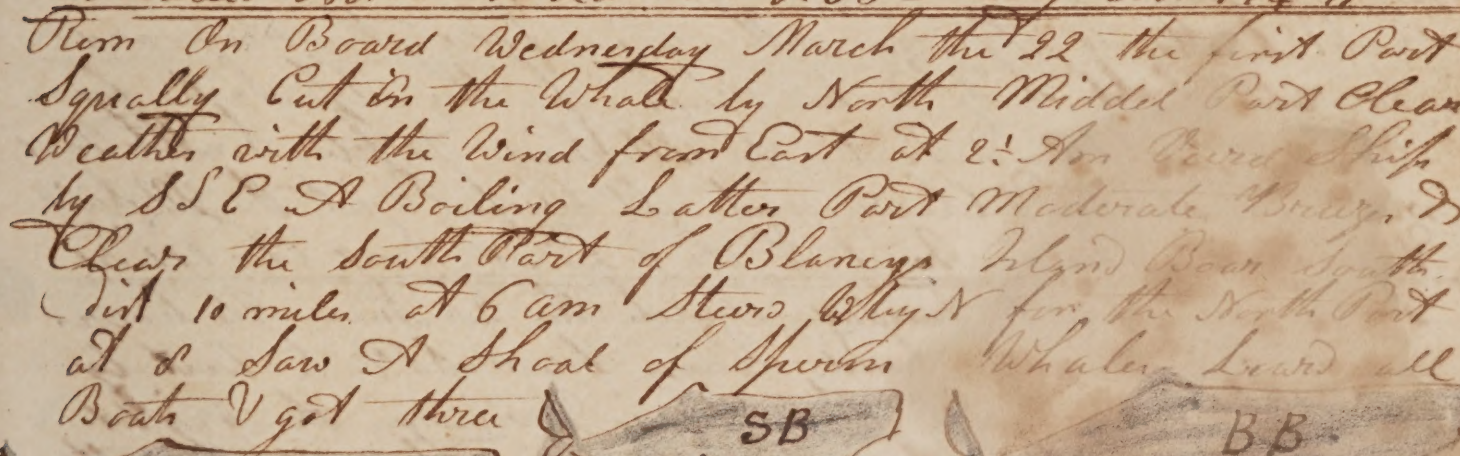 Rem On Board Wednesday March the 22 the first Part
Squally Cut in the Whale by North Middel Part Clear
Weather with the Wind from East at 2 Am Ship
by SSE A Boiling Latter Part Moderate Breezes &
Clear the South Part of Blaneys Island Boar South
dist 10 miles at 6 am Steerd N for the North Part
at 8 Saw A Shoal of Sperm Whales Loard all
Boats & got three
SB
BB